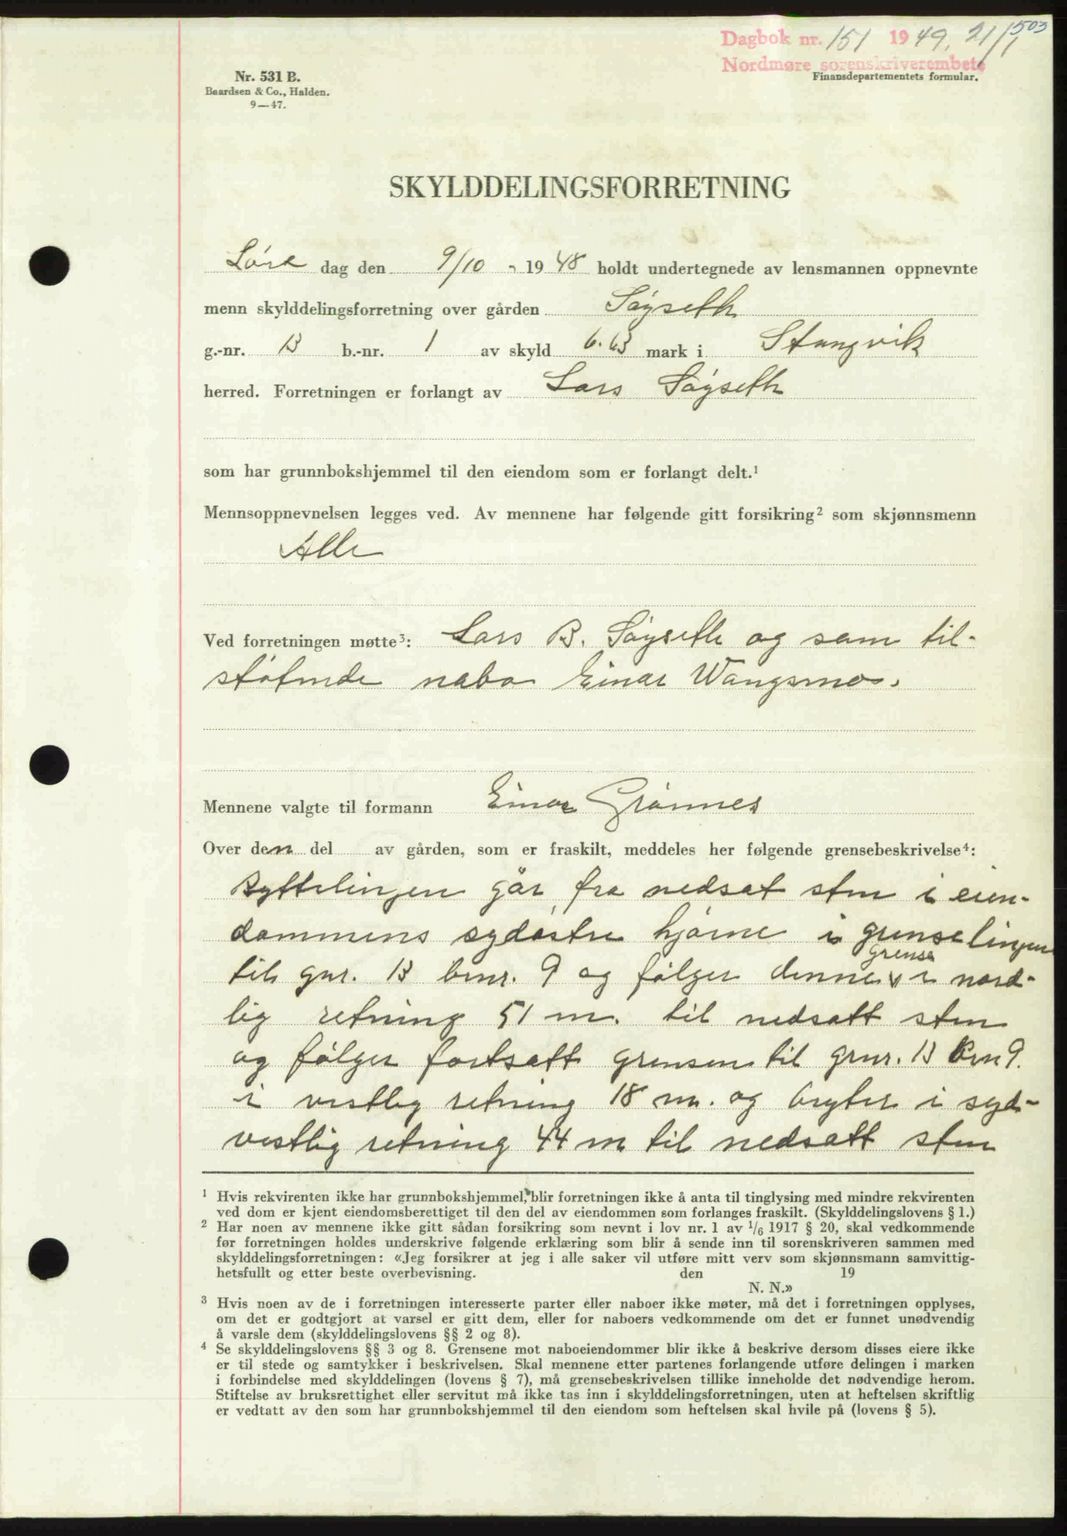 503
Dagbok nr. 151 1949, 21/1
Nordmøre sorenskriverembete
Finansdepartementets formular.
Nr. 531 B.
Baardsen & Co., Halden.
9—47.
SKYLDDELINGSFORRETNING
Løre dag den 9/10 - 1948 holdt undertegnede av lensmannen oppnevnte
menn skylddelingsforretning over gården Søyseth
g.-nr. 13 b.-nr. 1 av skyld 6.63 mark i Stangvik
herred. Forretningen er forlangt av Lars Søyseth
som har grunnbokshjemmel til den eiendom som er forlangt delt.¹
Mennsoppnevnelsen legges ved. Av mennene har følgende gitt forsikring² som skjønnsmenn
Alle
Ved forretningen møtte³: Lars B. Søyseth og som til-
støtende nabo Einar Wangsmo.
Mennene valgte til formann Einar Grønnes
Over den del av gården, som er fraskilt, meddeles her følgende grensebeskrivelse⁴:
Byttelingen går fra nedsat sten i eien-
dommens sydøstre hjørne i grenselingen
til gnr. 13 bnr. 9 og følger denne grense i nord-
lig retning 51 m. til nedsatt sten
og følger fortsatt grensen til gnr. 13 brn 9.
i vestlig retning 18 m. og bryter i syd-
vestlig retning 44 m til nedsatt sten
¹ Hvis rekvirenten ikke har grunnbokshjemmel, blir forretningen ikke å anta til tinglysing med mindre rekvirenten
ved dom er kjent eiendomsberettiget til den del av eiendommen som forlanges fraskilt. (Skylddelingslovens § 1.)
² Har noen av mennene ikke gitt sådan forsikring som nevnt i lov nr. 1 av 1/6 1917 § 20, skal vedkommende
før forretningen holdes underskrive følgende erklæring som blir å sende inn til sorenskriveren sammen med
skylddelingsforretningen: «Jeg forsikrer at jeg i alle saker vil utføre mitt verv som skjønnsmann samvittig-
hetsfullt og etter beste overbevisning. den 19
N. N.»
³ Hvis noen av de i forretningen interesserte parter eller naboer ikke møter, må det i forretningen opplyses,
om det er godtgjort at varsel er gitt dem, eller for naboers vedkommende om det er funnet unødvendig
å varsle dem (skylddelingslovens §§ 2 og 8).
⁴ Se skylddelingslovens §§ 3 og 8. Grensene mot naboeiendommer blir ikke å beskrive dersom disses eiere ikke
er til stede og samtykker i beskrivelsen. Skal mennene etter partenes forlangende utføre delingen i marken
i forbindelse med skylddelingen (lovens § 7), må grensebeskrivelsen tillike inneholde det nødvendige herom.
Stiftelse av bruksrettighet eller servitut må ikke tas inn i skylddelingsforretningen, uten at heftelsen skriftlig
er vedtatt av den som har grunnbokshjemmel til den eiendom som heftelsen skal hvile på (lovens § 5).